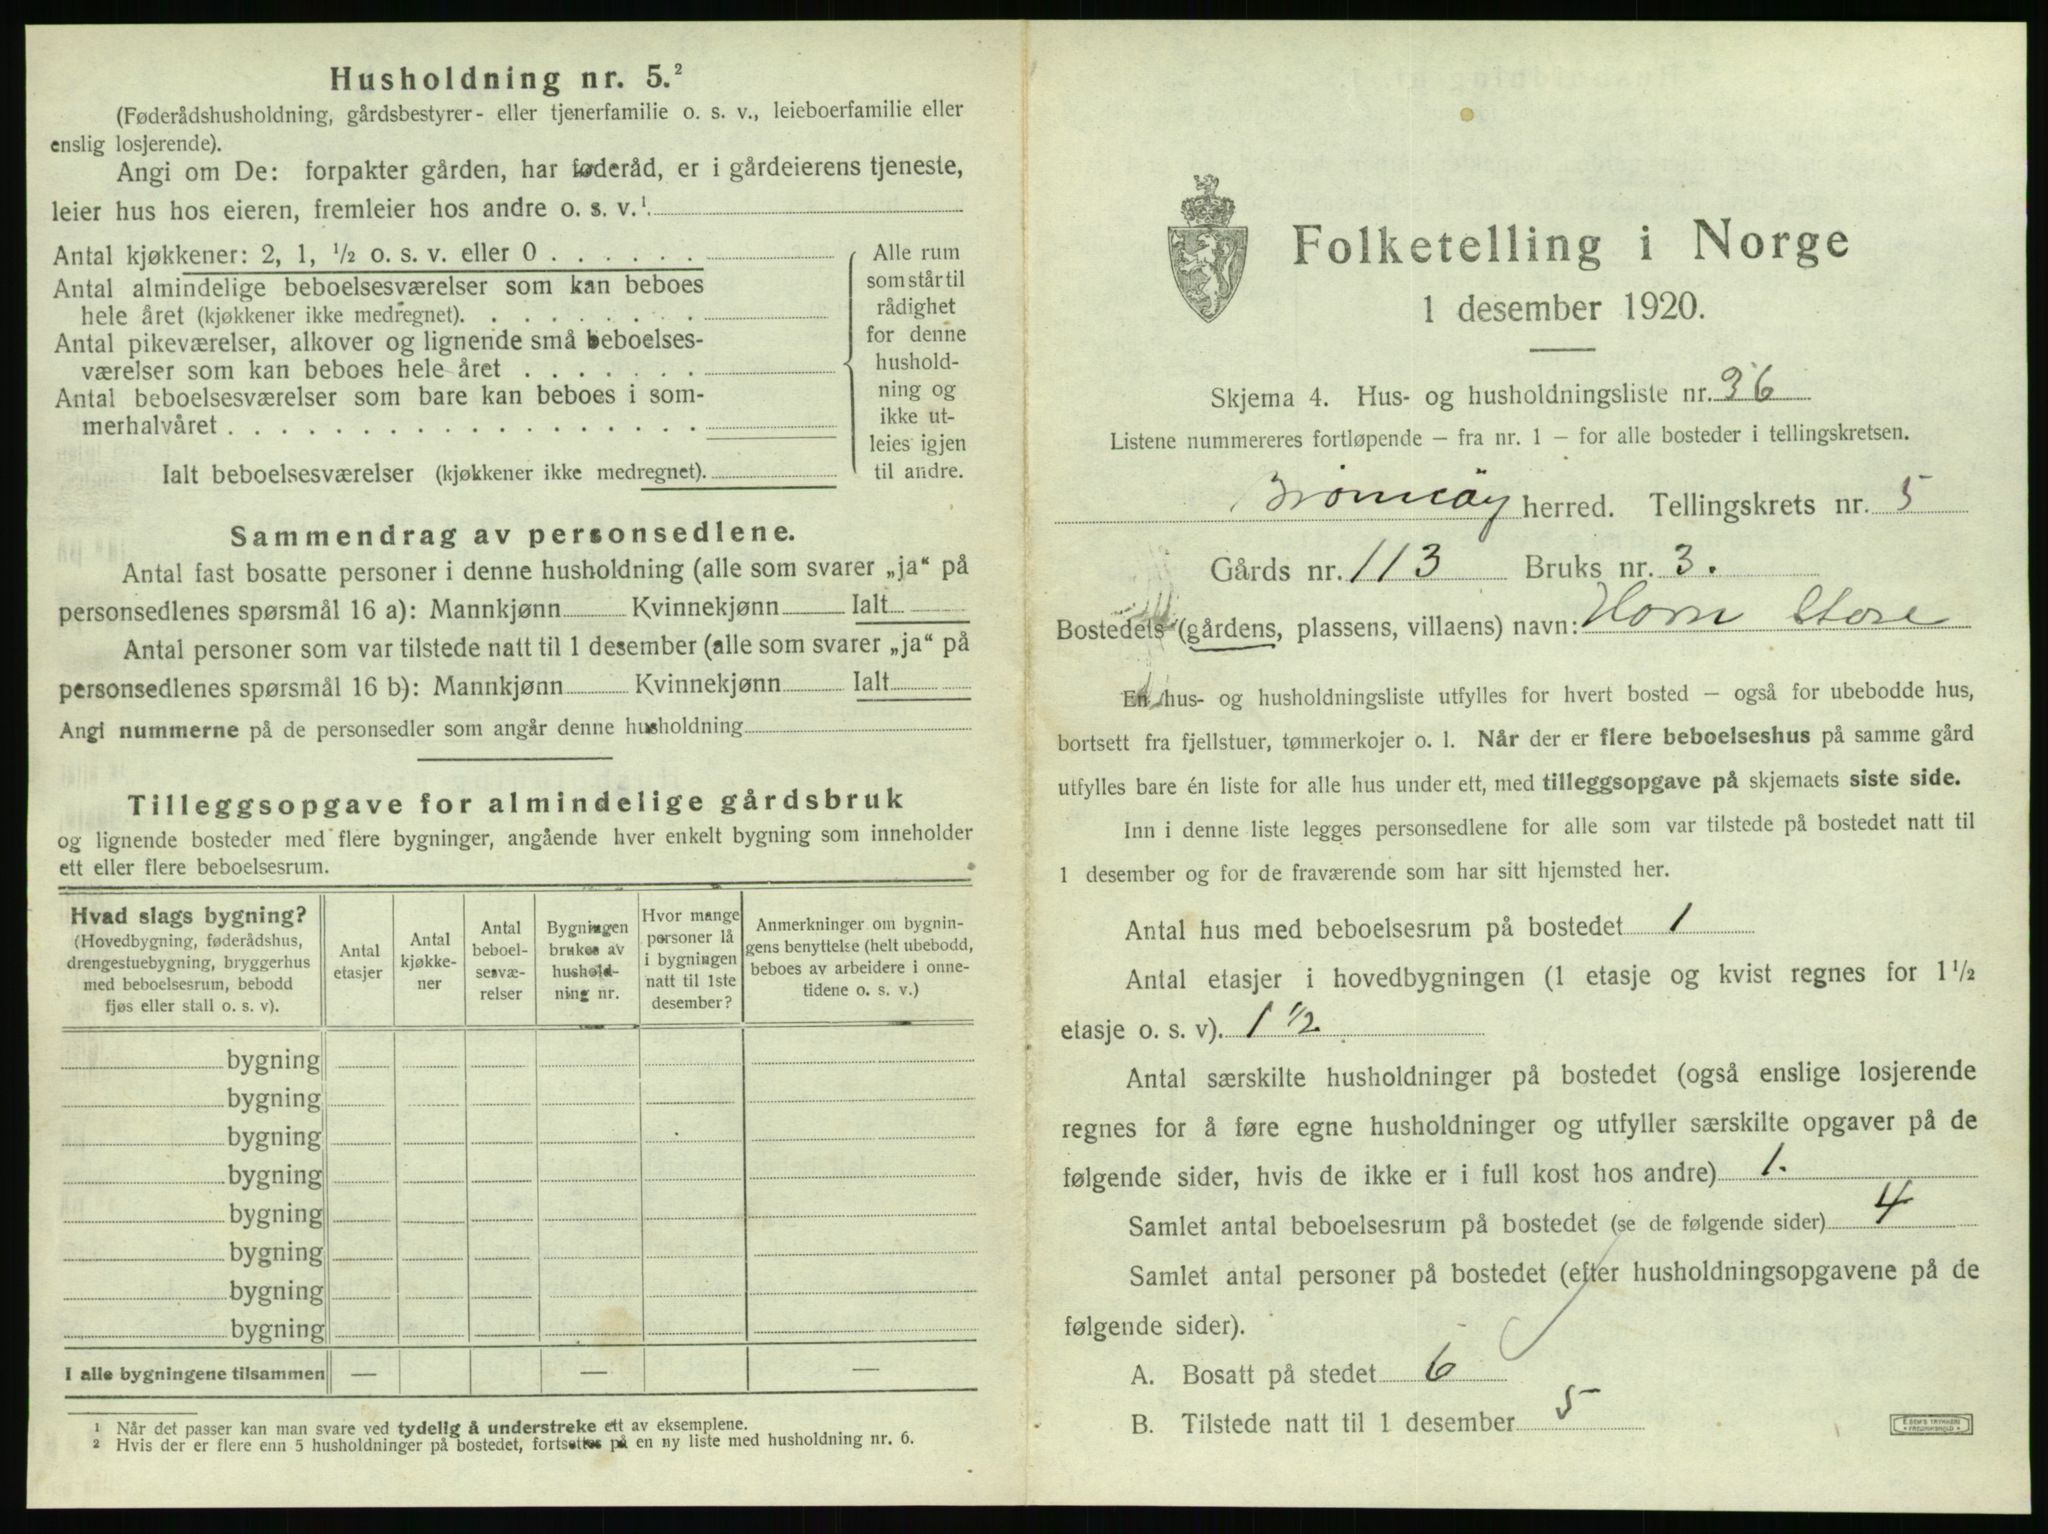 Husholdning nr. 5.²
(Føderådshusholdning, gårdsbestyrer- eller tjenerfamilie o. s. v., leieboerfamilie eller
enslig losjerende).
Angi om De: forpakter gården, har føderåd, er i gårdeierens tjeneste,
leier hus hos eieren, fremleier hos andre o. s. v.¹
Antal kjøkkener: 2, 1, ½ o. s. v. eller 0 . . . . . .
Antal almindelige beboelsesværelser som kan beboes
hele året (kjøkkener ikke medregnet). . . . . . . . .
Antal pikeværelser, alkover og lignende små beboelses-
værelser som kan beboes hele året . . . . . . .
Antal beboelsesværelser som bare kan beboes i som-
merhalvåret . . . . . . . . . . . . . . . . . .
Ialt beboelsesværelser (kjøkkener ikke medregnet).
Alle rum
som står til
rådighet
for denne
hushold-
ning og
ikke ut-
leies igjen
til andre.
Sammendrag av personsedlene.
Antal fast bosatte personer i denne husholdning (alle som svarer „ja“ på
personsedlenes spørsmål 16 a): Mannkjønn Kvinnekjønn Ialt
Antal personer som var tilstede natt til 1 desember (alle som svarer „ja“ på
personsedlenes spørsmål 16 b): Mannkjønn Kvinnekjønn Ialt
Angi nummerne på de personsedler som angår denne husholdning
Tilleggsopgave for almindelige gårdsbruk
og lignende bosteder med flere bygninger, angående hver enkelt bygning som inneholder
ett eller flere beboelsesrum.
Hvad slags bygning?
(Hovedbygning, føderådshus,
drengestuebygning, bryggerhus
med beboelsesrum, bebodd
fjøs eller stall o. s. v).
Antal
etasjer
Antal
kjøkke-
ner
Antal
beboel-
sesvæ-
relser
Bygningen
brukes av
hushold-
ning nr.
Hvor mange
personer lå
i bygningen
natt til 1ste
desember?
Anmerkninger om bygnin-
gens benyttelse (helt ubebodd,
beboes av arbeidere i onne-
tidene o. s. v.)
bygning
bygning
bygning
bygning
bygning
bygning
bygning
bygning
I alle bygningene tilsammen — — —
¹ Når det passer kan man svare ved tydelig å understreke ett av eksemplene.
² Hvis der er flere enn 5 husholdninger på bostedet, fortsettes på en ny liste med husholdning nr. 6.
Folketelling i Norge
1 desember 1920.
Skjema 4. Hus- og husholdningsliste nr. 36
Listene nummereres fortløpende – fra nr. 1 – for alle bosteder i tellingskretsen.
Brønnøy herred. Tellingskrets nr. 5
Gårds nr. 113 Bruks nr. 3.
Bostedets (gårdens, plassens, villaens) navn: Horn Store
En hus- og husholdningsliste utfylles for hvert bosted – også for ubebodde hus,
bortsett fra fjellstuer, tømmerkojer o. l. Når der er flere beboelseshus på samme gård
utfylles bare én liste for alle hus under ett, med tilleggsopgave på skjemaets siste side.
Inn i denne liste legges personsedlene for alle som var tilstede på bostedet natt til
1 desember og for de fraværende som har sitt hjemsted her.
Antal hus med beboelsesrum på bostedet 1
Antal etasjer i hovedbygningen (1 etasje og kvist regnes for 1½
etasje o. s. v). 1 ½
Antal særskilte husholdninger på bostedet (også enslige losjerende
regnes for å føre egne husholdninger og utfyller særskilte opgaver på de
følgende sider, hvis de ikke er i full kost hos andre) 1.
Samlet antal beboelsesrum på bostedet (se de følgende sider) 4
Samlet antal personer på bostedet (efter husholdningsopgavene på de
følgende sider).
A. Bosatt på stedet 6
B. Tilstede natt til 1 desember 5